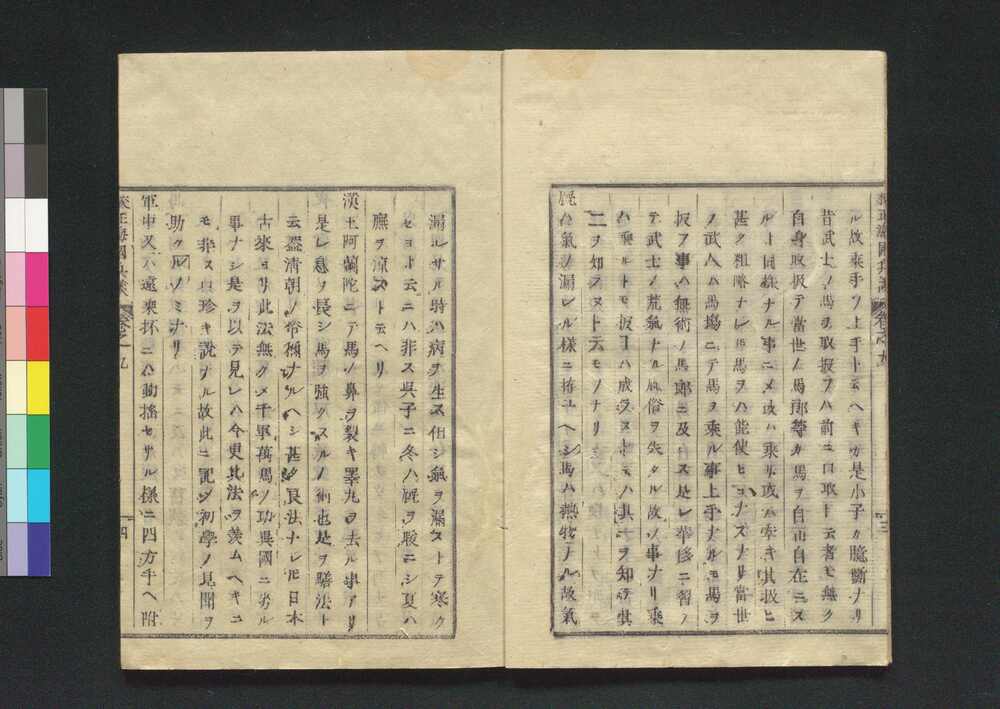 ル故乘手ノ上手ト云ヘキカ是小子カ臆斷ナリ
昔武士ノ馬ヲ取扱フハ前ニ口取ト云者モ無ク
自身取扱テ當世ノ馬郎等カ馬ヲ自由自在ニス
ルト同樣ナル事ニメ或ハ乘リ或ハ牽キ其扱ヒ
甚タ粗略ナレ𪜈馬ヲハ能使ヒコナスナリ當世
ノ武人ハ馬塲ニテ馬ヲ乘ル事上手ナルモ馬ヲ
扱フ事ハ無術ノ馬郎ニ及ハス是レ華侈ニ習ノ
テ武士ノ荒氣ナル風俗ヲ失タル故ノ事ナリ乘
ハ乘ルトモ扱コハ成ラストテハ其一ヲ知テ其
二ヲ知ラヌト云モノナリ
ハ氣ノ漏レル樣ニ拵ユヘシ馬ハ熱物ナル故氣
漏レサル時ハ病ヲ生ス但シ氣ヲ漏ストテ寒ク
セヨト云ニハ非ス呉子ニ冬ハ厩ヲ煖ニシ夏ハ
廡ヲ涼ストテ云ヘリ
漢土阿蘭陀ニテ馬ノ鼻ヲ裂キ睪丸ヲ去ル事アリ
是レ息ヲ長シ馬ヲ強クスルノ術也是ヲ騸法ト
云盖清朝ノ俗稱ナルヘシ甚タ良法ナレ𪜈日本
古來ヨリ此法無クメ千軍萬馬ノ功異國ニ劣ル
事ナシ是ヲ以テ見レハ今更其法ヲ羨ムヘキニ
モ非ス珍キ說ナル故此ニ記シ初學ノ見聞ヲ
助クルノミナリ
軍中又ハ遠乘抔ニハ動搖セサル樣ニ四方手ヘ附